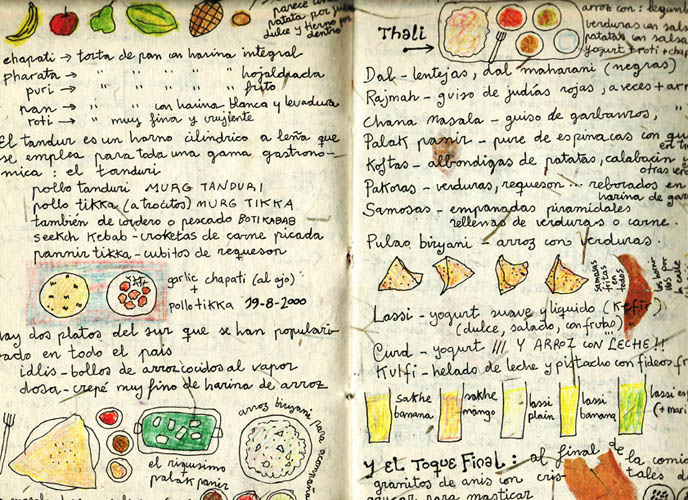 parece con
patata por
dulce y tierno por
dentro
chapati → torta de pan con harina integral
pharata → " " " " " hojaldrada
puri → " " " " " frito
nan → " " con harina blanca y levadura
roti → " muy fina y crujiente
El tandur es un horno cilíndrico a leña que
se emplea para toda una gama gastronó-
mica : el tanduri
pollo tanduri MURG TANDURI
pollo tikka (a trocitos) MURG TIKKA
también de cordero o pescado BOTIKABAB
seekch kebab - croketas de carne picada
pannir tikka - cubitos de requeson
garlic chapati (al ajo)
+
pollo tikka 19-8-2000
hay dos platos del sur que se han populari-
zado en todo el país
idlis - bollos de arroz cocidos al vapor
dosa - crepé muy fino de harina de arroz
el riquísimo
palak panir
arroz biryani para acompaña
Thali
→
arroz con : legumb
verduras con salsa
patatas con salsa
yogurt + roti + chap
Dal - lentejas, dal maharani (negras)
Rajmah - guiso de judías rojas, a veces + arr
Chana masala - guiso de garbanzos, "
Palak panir - pure de espinacas con qu
Koftas - albondigas de patatas, calabacin
otras ver
Pakoras - verduras, requeson ... rebozados en
harina de gar
Samosas - empanadas piramidales
rellenas de verduras o carne.
Pulao, biryani - arroz con verduras.
samosas
fritas
en
todos
Lassi - yogurt suave y liquido (Kefir)
(dulce, salado, con frutas)
Curd - yogurt !!! Y ARROZ CON LECHE !!
Kulfi - helado de leche y pistacho con fideos fr
sakhe
banana
sakhe
mango
lassi
plain
lassi
banana
lassi es
(+ mari
Y EL TOQUE FINAL : al final de la comi
granitos de anís con cris tales d
azucar para masticar